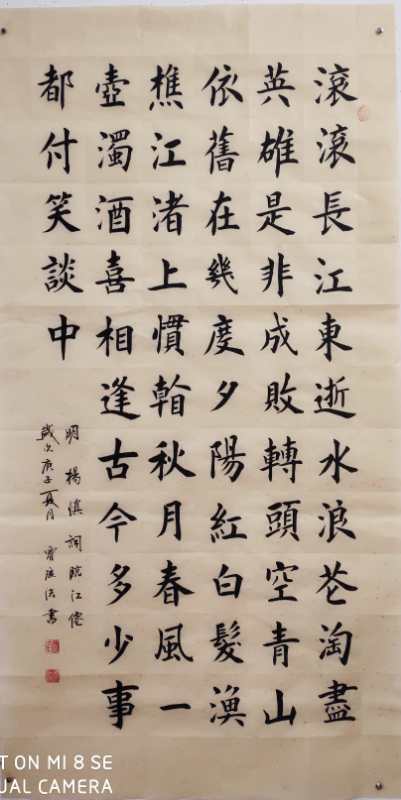 滾滾長江東逝水浪花淘盡
英雄是非成敗轉頭空青山
依舊在幾度夕陽紅白髮漁
樵江渚上慣看秋月春風一
壺濁酒喜相逢古今多少事
都付笑談中
明楊慎詞臨江僊
歲次庚子夏月 書
T ON MI 8 SE
UAL CAMERA